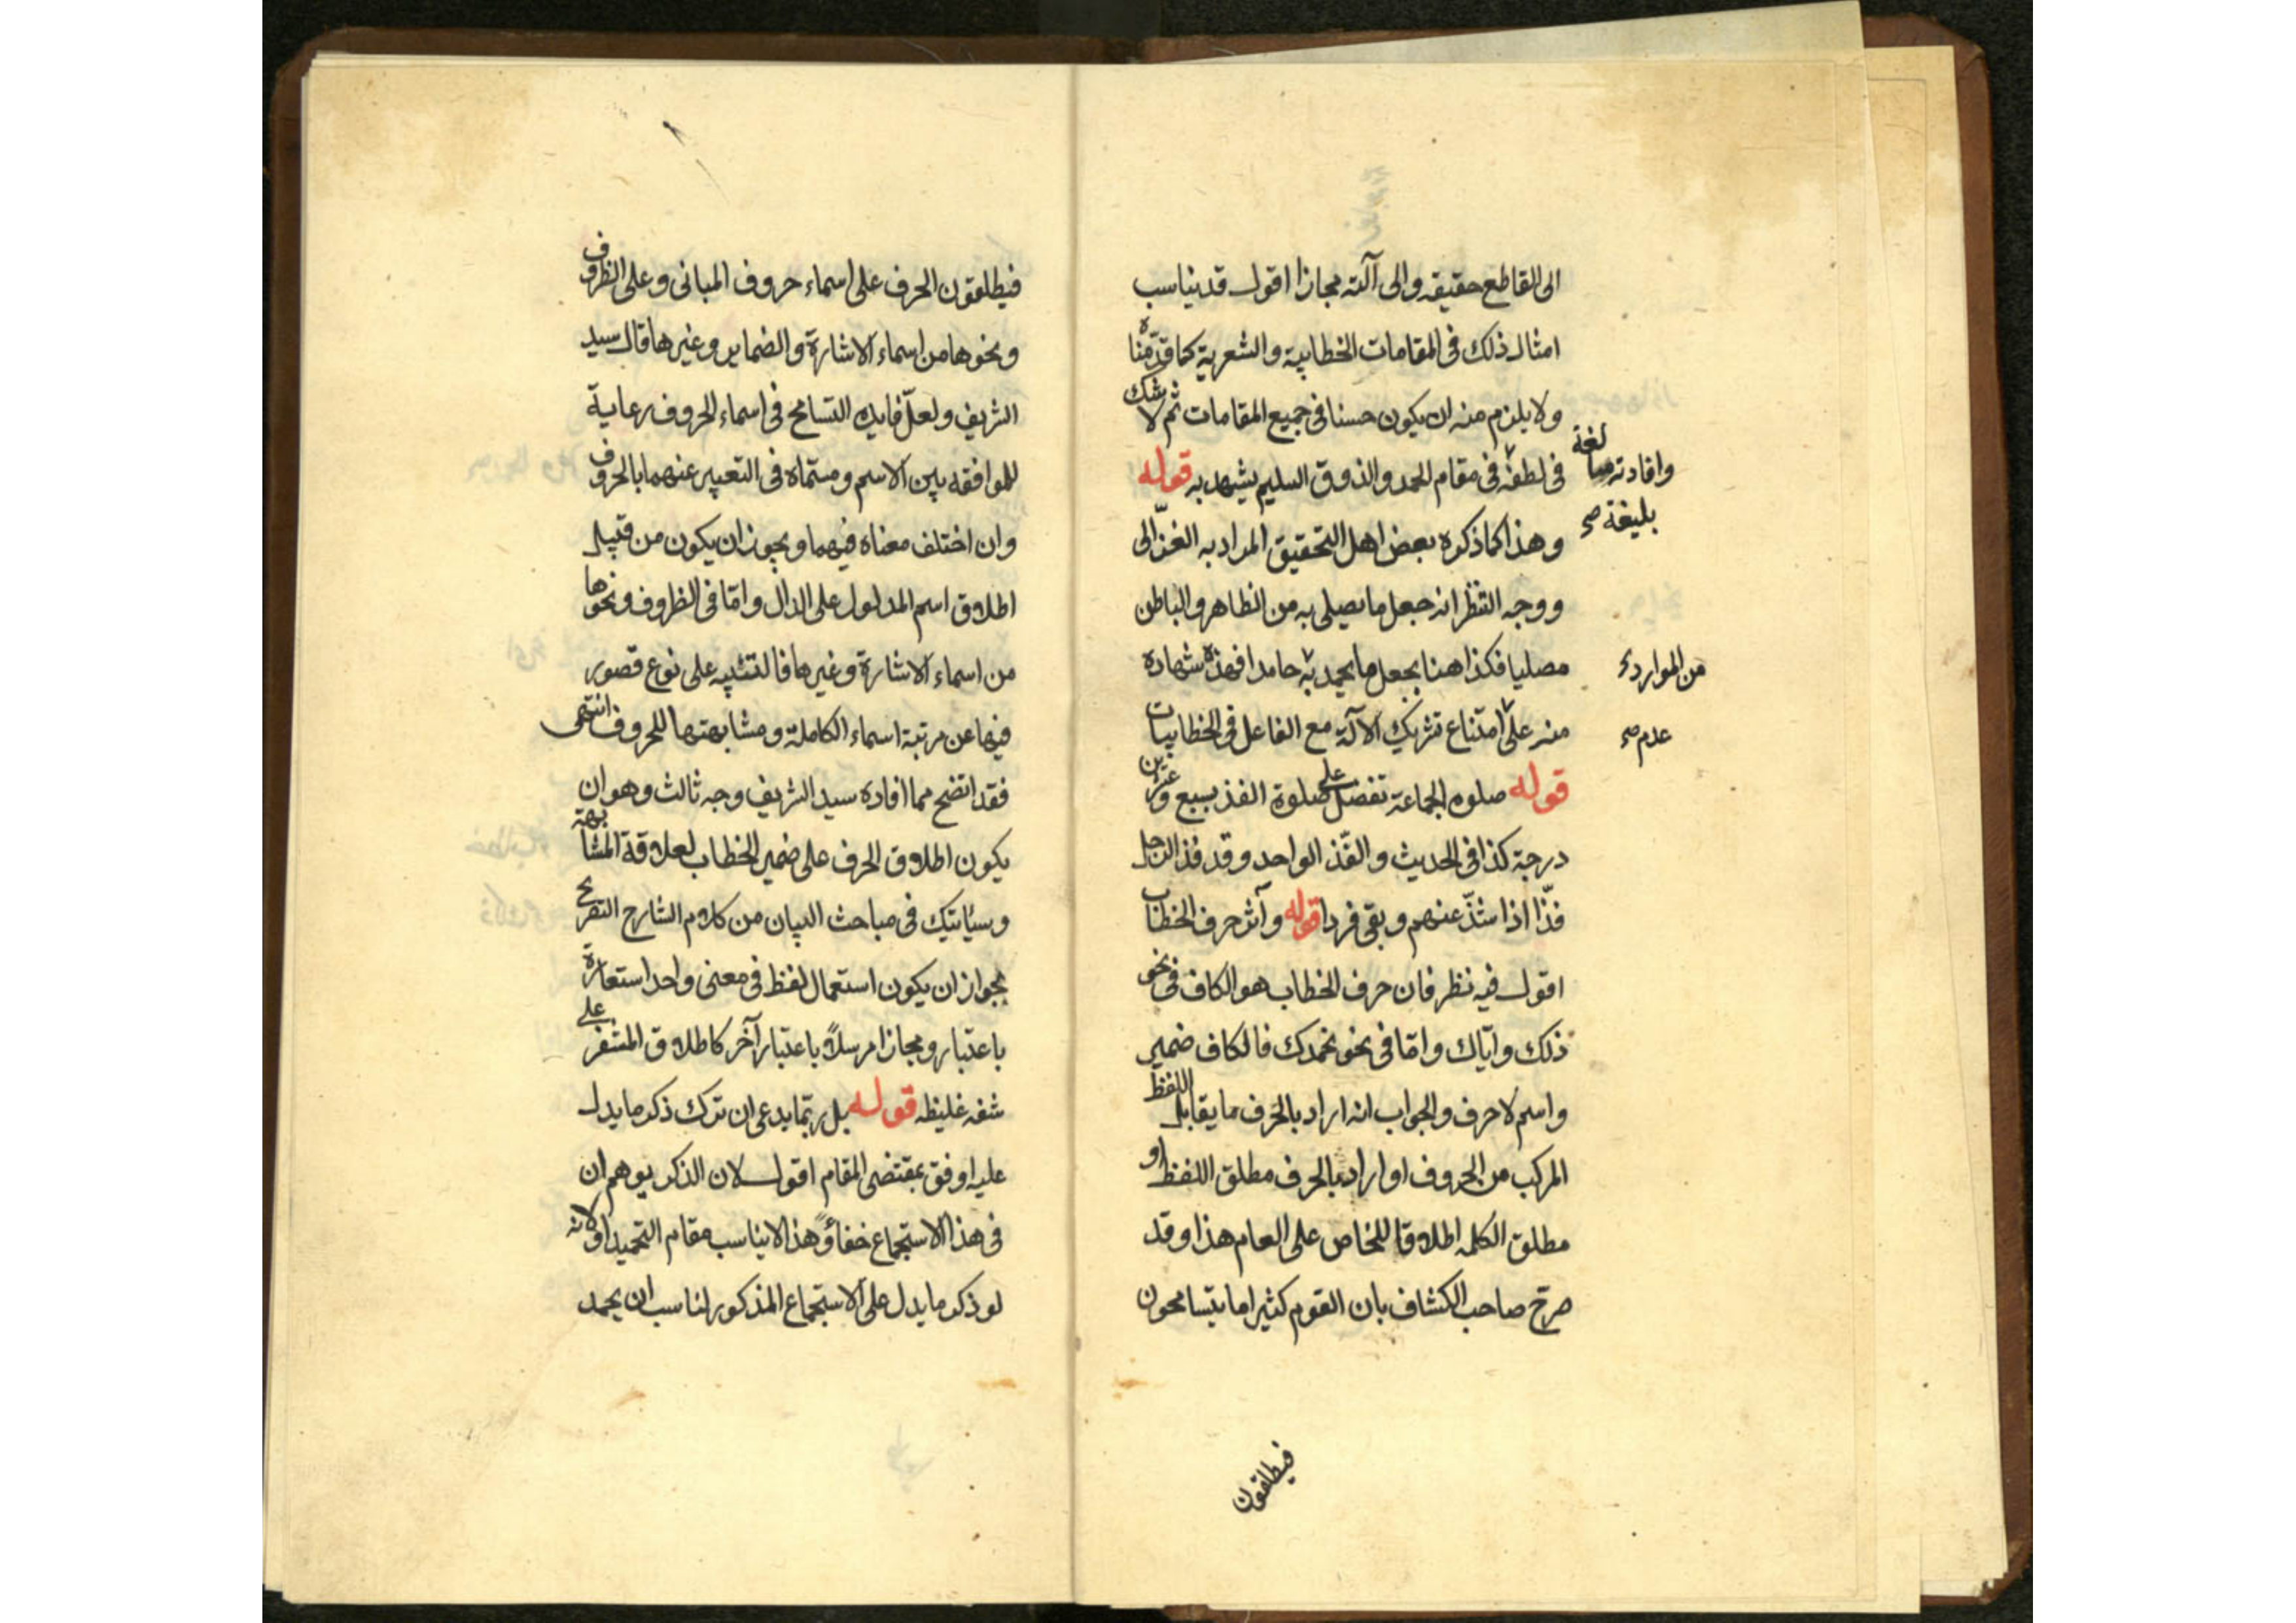 الى القاطع حقيقه والى آلته مجازا اقول قد يناسب
امثال ذلك فى المقامات الخطابية والشعرية كما قدمناه
ولا يلزم منه ان يكون حسنا فى جميع المقامات ثم لا شك
فى لطفه فى مقام الحمد والذوق السليم يشهد به قوله
وافادته مبالغة
بليغة صح
وهذا كما ذكره بعض اهل التحقيق المراد به الغزّالى
ووجه النظر انه جعل ما يصلى به من الظاهر والباطن
مصليا فكذا هنا يجعل ما يحمد به حامدا فهذه شهادة
من الموارد
منه على امتناع تشريك الآلة مع الفاعل فى الخطابيات
عدم صح
قوله صلوه الجماعة تفضل على صلوة الفذ بسبع وعشرين
درجة كذا فى الحديث والفّذ الواحد وقد فذ الرجل
فذّا اذا شذّ عنهم وبقى فردا قوله وآثر حرف الخطاب
اقول فيه نظر فان حرف الخطاب هو الكاف فى نحو
ذلك وايّاك وامّا فى نحو نحمدك فالكاف ضمير
واسم لا حرف والجواب انه اراد بالحرف ما يقابل اللفظ
المركب من الحروف او اراد بالحرف مطلق اللفظ او
مطلق الكلمه اطلاقا للخاص على العام هذا وقد
صرح صاحب الكشاف بان القوم كثيرا ما يتسامحون
فيطلقون
فيطلقون الحرف على اسماء حروف المبانى وعلى الظروف
ونحوها من اسماء الاشارة والضماير وغيرها قال سيد
الشريف ولعلّ فايده التسامح فى اسماء الحروف رعاية
للموافقه بين الاسم ومسمّاه فى التعبير عنهما بالحروف
وان اختلف معناه فيهما ويجوز ان يكون من قبيل
اطلاق اسم المدلول على الدال وامّا فى الظروف ونحوها
من اسماء الاشارة وغيرها فالتنبيه على نوع قصور
فيها عن مرتبة اسماء الكاملة ومشابهتها للحروف انتهى
فقد اتضح مما افاده سيد الشريف وجه ثالث وهو ان
يكون اطلاق الحرف على ضمير الخطاب لعلاقة المشابهة
وسيأتيك فى مباحث البيان من كلام الشارح التصريح
بجواز ان يكون استعمال لفظ فى معنى واحد استعارة
باعتبار ومجازا مرسلاً باعتبار آخر كاطلاق المشفر على
شفه غليظه قوله بل ربّما يدعى ان ترك ذكر ما يدل
عليه اوفق بمقتضى المقام اقول لان الذكر يوهم ان
فى هذا الاستجماع خفاءً وهذا لا يناسب مقام التحميد او لانه
لو ذكر ما يدل على الاستجماع المذكور لناسب ان يحمد